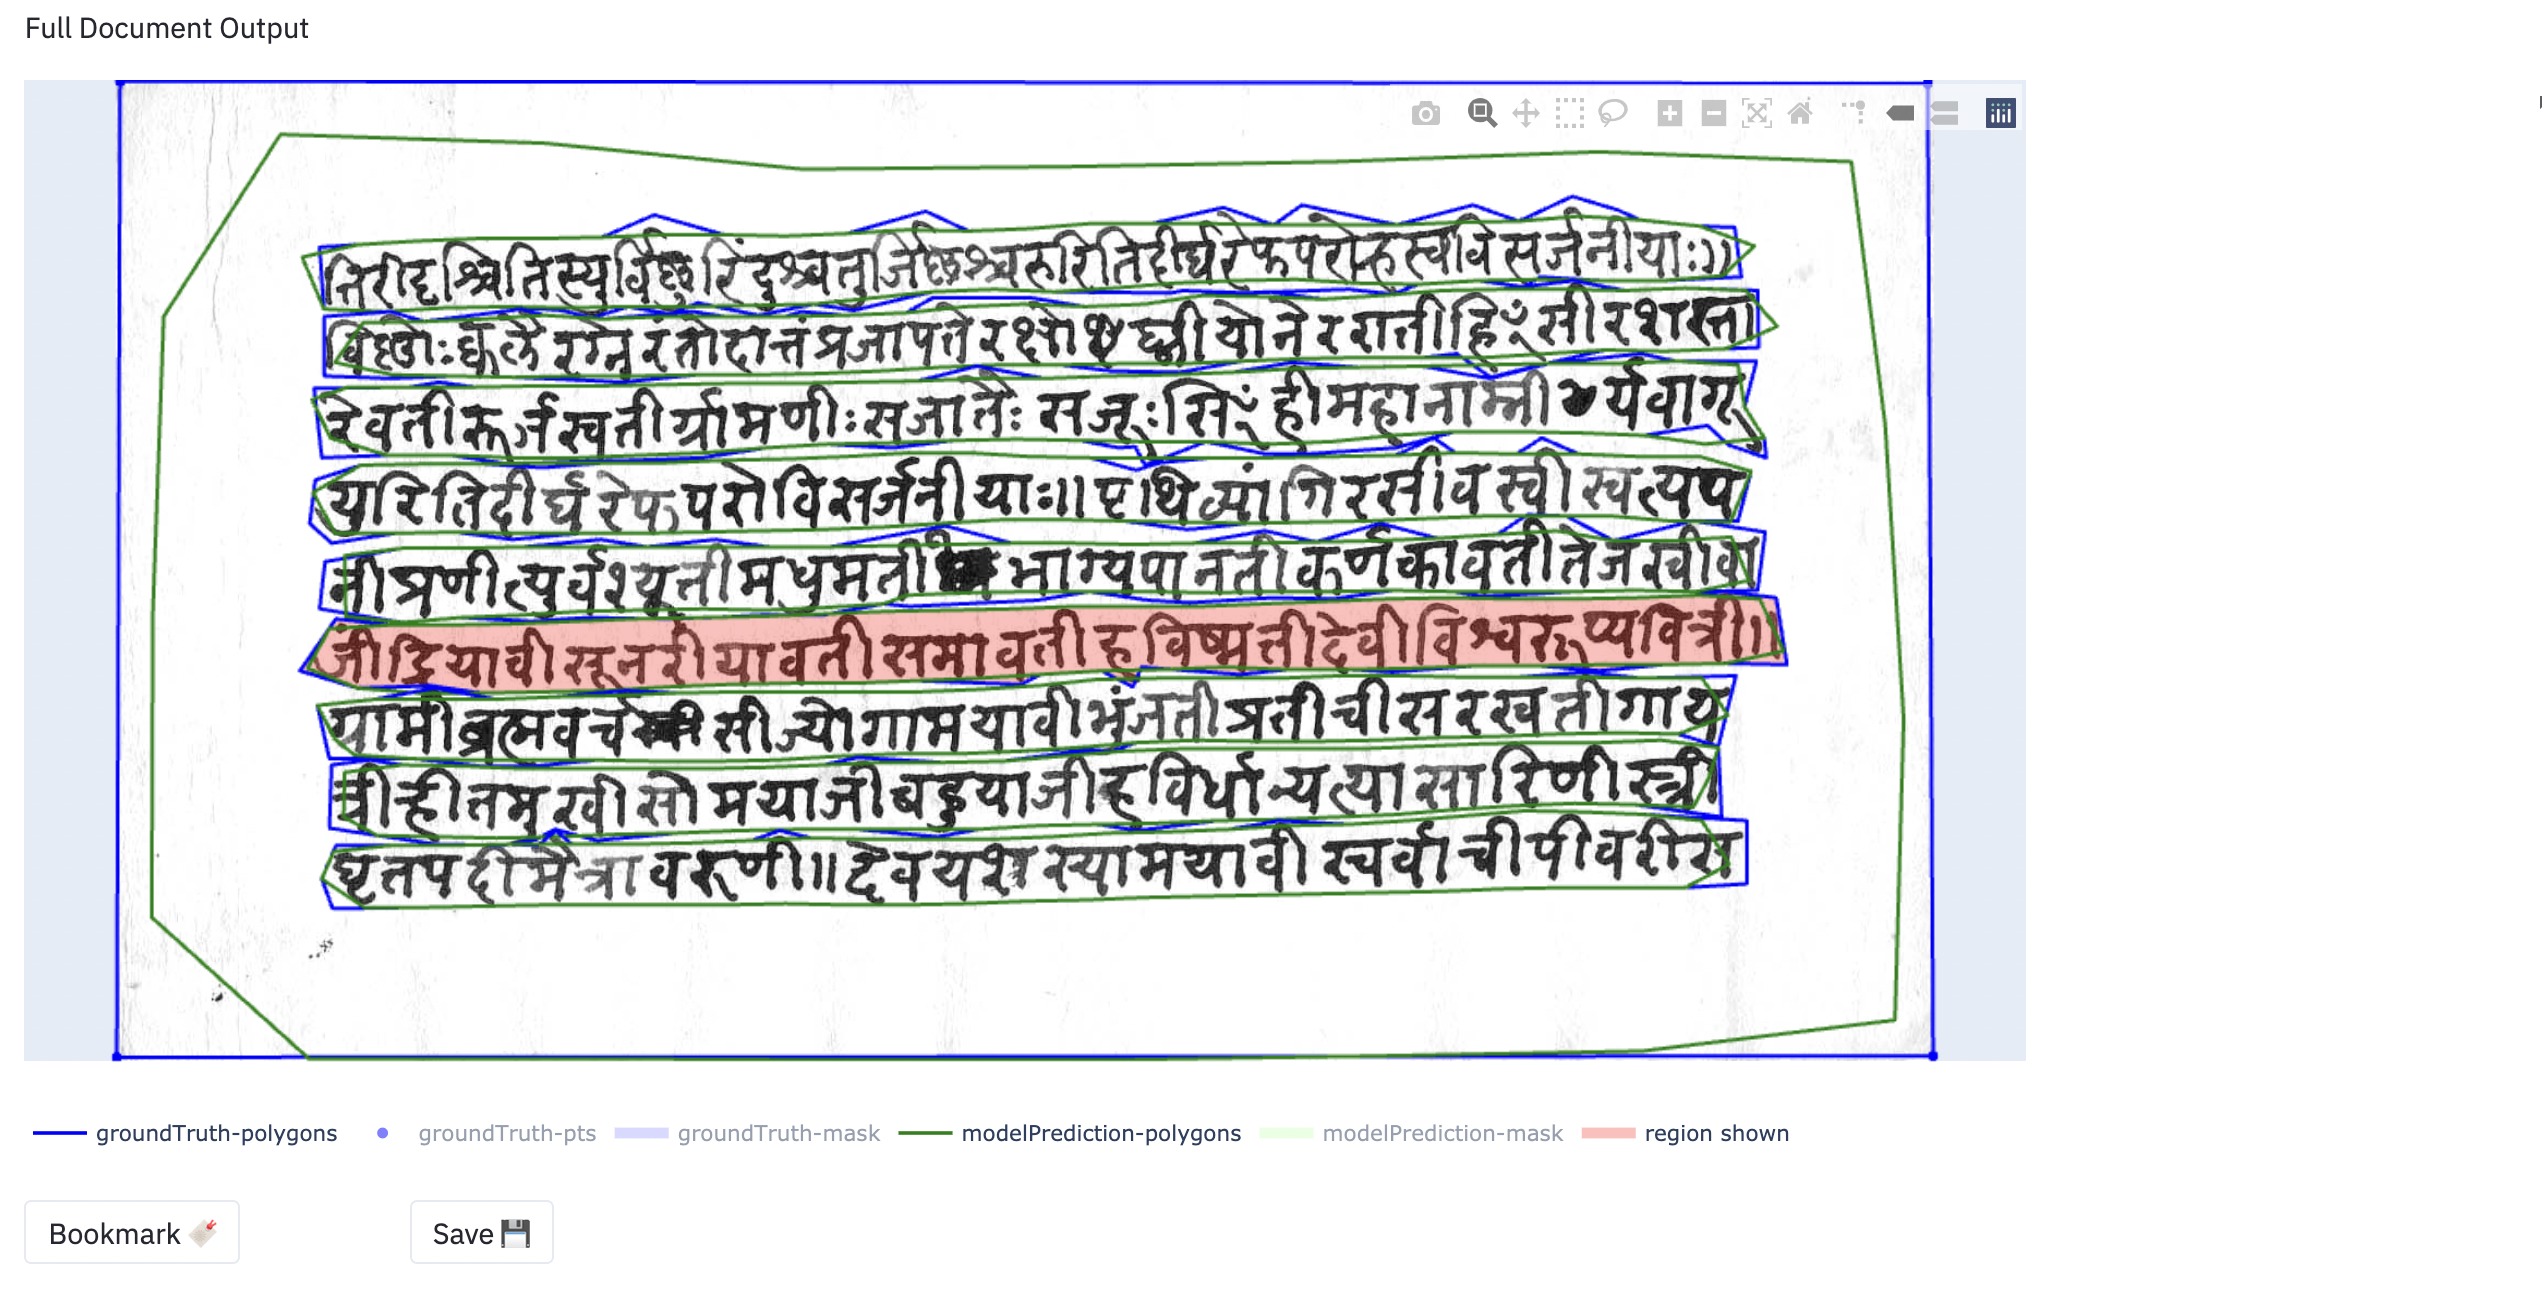 Full Document Output
तिरीहश्चितिस्युर्विष्णुरिंदुश्चतुर्जिष्णुश्चरुरितिदीर्घरेफपरोह्रस्वविसर्जनीयाः॥
विष्णोः रंतोदात्तंप्रजापते योनेररातीर्हि सीरशस्ता
रेवतीरूर्जस्वतीर्ग्रामणीःसजातैः सजूःसिँहीमहानाम्नी र्यवागू
युरितिदीर्घरेफपरोविसर्जनीयाः॥पृथिव्यांगिरसीवस्वीस्वत्यप
त्युर्वश्यूतीमधुमती भाग्यपानतीकर्णकावतीतेजस्वीवा
जींद्रियावीसूनरीयावतीसमावतीहविष्मतीदेवीविश्वरूप्यवित्री॥
यामीब्रह्मवर्च सीज्योगामयावीभुंजतीप्रतीचीसरस्वतीगाय
त्रीह्रीतमस्वीसोमयाजीबहुयाजीहविर्धान्यत्यासारिणीस्त्री
घृतपदीमैत्रावरुणी॥देवयशस्यामयावी स्वर्वाचीपीवरीरा
groundTruth-polygons groundTruth-pts groundTruth-mask modelPrediction-polygons modelPrediction-mask region shown
Bookmark Save